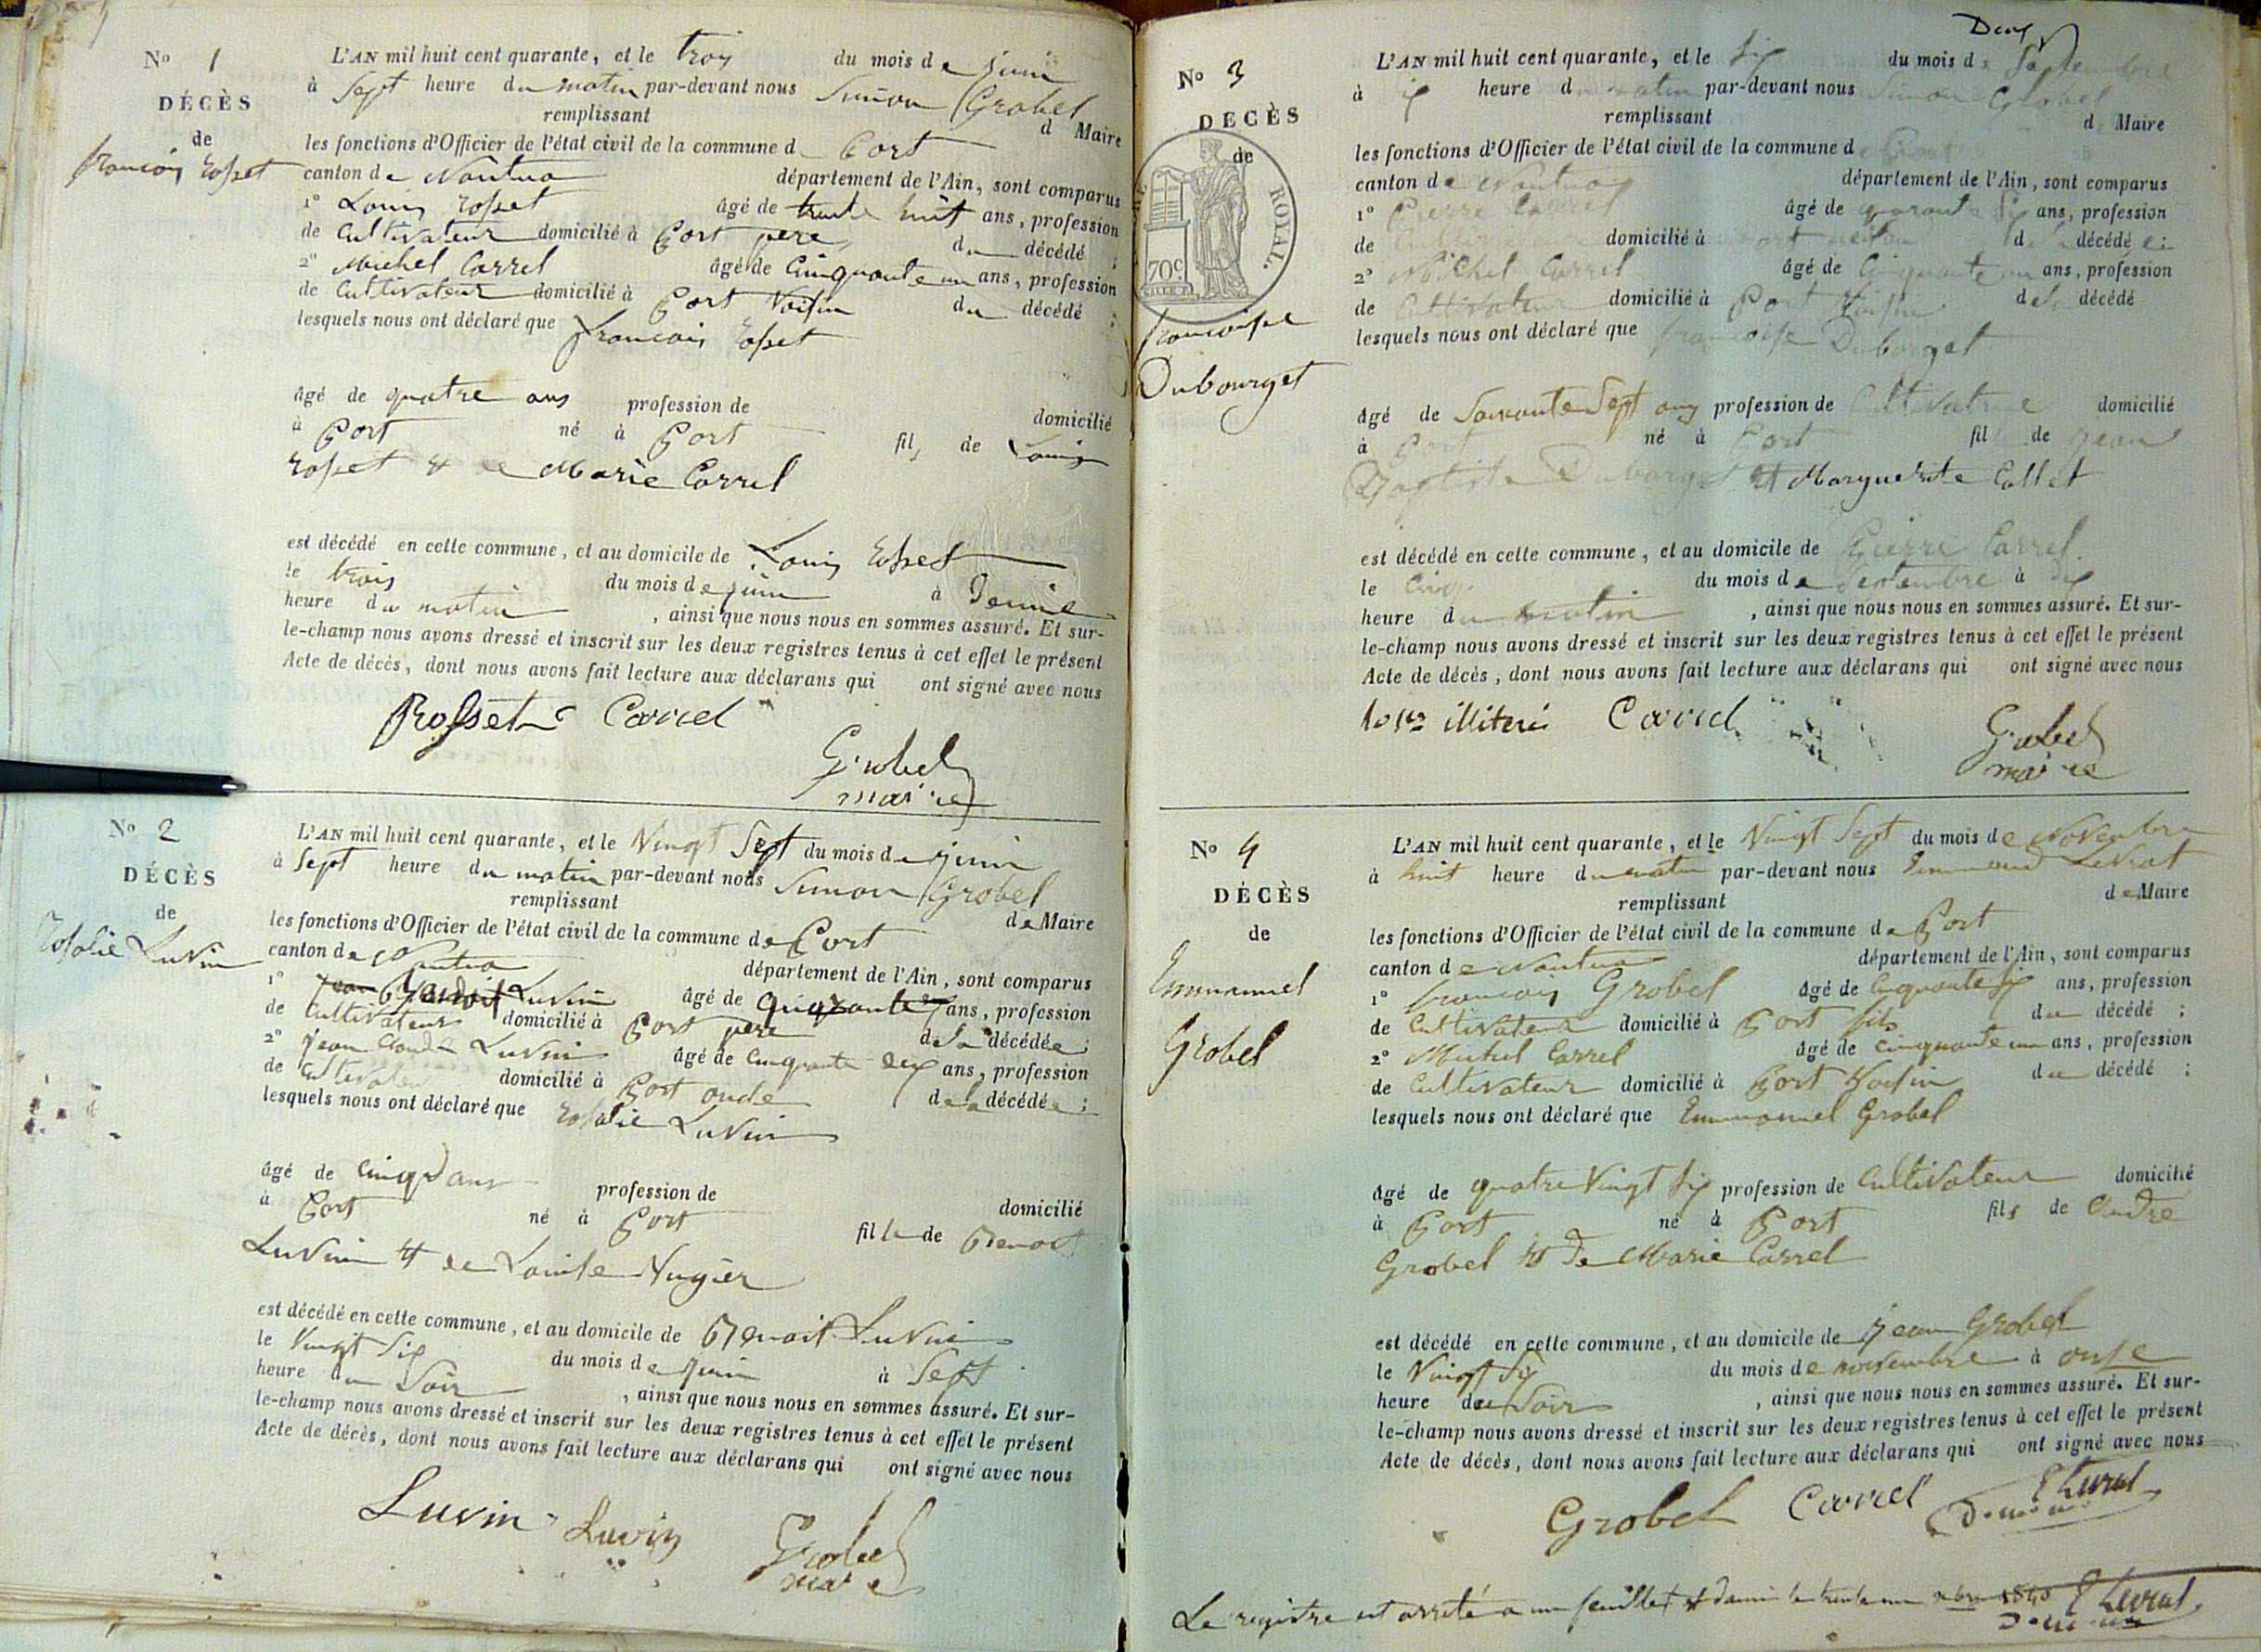 No 1
DÉCÈS
de
francois Rosset
L'AN mil huit cent quarante, et le trois du mois de juin
à Sept heure du matin par-devant nous Simon Grobel
remplissant d Maire
les fonctions d'Officier de l'état civil de la commune d Port
canton de Nantua département de l'Ain, sont comparus
1° Louis Rosset âgé de trente huit ans, profession
de Cultivateur domicilié à Port pere du décédé ;
2° Michel Carrel âgé de Cinquante un ans, profession
de Cultivateur domicilié à Port Voisin du décédé ;
lesquels nous ont déclaré que francois Rosset
âgé de quatre ans profession de domicilié
à Port né à Port fils de Louis
Rosset et de Marie Carrel
est décédé en cette commune, et au domicile de Louis Rosset
le trois du mois de juin à Demie
heure du matin , ainsi que nous nous en sommes assuré. Et sur-
le-champ nous avons dressé et inscrit sur les deux registres tenus à cet effet le présent
Acte de décès, dont nous avons fait lecture aux déclarans qui ont signé avec nous
Rosset Carrel
Grobel
maire
No 2
DÉCÈS
de
Rosalie Luvin
L'AN mil huit cent quarante, et le Vingt Sept du mois de juin
à Sept heure du matin par-devant nous Simon Grobel
remplissant de Maire
les fonctions d'Officier de l'état civil de la commune de Port
canton de Nantua département de l'Ain, sont comparus
1° Benoit Luvin âgé de quarante ans, profession
de Cultivateur domicilié à Port pere de la décédée ;
2° Jean Claude Luvin âgé de Cinquante ans, profession
de Cultivateur domicilié à Port oncle de la décédée ;
lesquels nous ont déclaré que Rosalie Luvin
âgé de Cinq ans profession de domicilié
à Port né à Port fille de Benoit
Luvin et de Louise Hugier
est décédé en cette commune, et au domicile de Benoit Luvin
le Vingt Six du mois de juin à Sept
heure du Soir , ainsi que nous nous en sommes assuré. Et sur-
le-champ nous avons dressé et inscrit sur les deux registres tenus à cet effet le présent
Acte de décès, dont nous avons fait lecture aux déclarans qui ont signé avec nous
Luvin Luvin Grobel
maire
Deux
No 3
DECÈS
de
ROYAL.
70c
francoise
Dubourget
L'AN mil huit cent quarante, et le Six du mois de Septembre
à heure du matin par-devant nous Simon Grobel
remplissant d Maire
les fonctions d'Officier de l'état civil de la commune d Port
canton de Nantua département de l'Ain, sont comparus
1° Pierre Carrel âgé de quarante Six ans, profession
de domicilié à Port de la décédé
2° Michel Carrel âgé de Cinquante un ans, profession
de Cultivateur domicilié à Port Voisin de la décédé
lesquels nous ont déclaré que francoise Dubourget
âgé de Soixante Sept ans profession de Cultivatrice domicilié
à Port né à Port fil de Jean
Baptiste Dubourget et Marguerite Collet
est décédé en cette commune, et au domicile de Pierre Carrel
le Cinq du mois de Septembre à Dix
heure du matin , ainsi que nous nous en sommes assuré. Et sur-
le-champ nous avons dressé et inscrit sur les deux registres tenus à cet effet le présent
Acte de décès, dont nous avons fait lecture aux déclarans qui ont signé avec nous
Carrel Grobel
maire
No 4
DÉCÈS
de
Emmanuel
Grobel
L'AN mil huit cent quarante, et le Vingt Sept du mois de Novembre
à huit heure du matin par-devant nous Emmanuel Levrat
remplissant de Maire
les fonctions d'Officier de l'état civil de la commune de Port
canton de Nantua département de l'Ain, sont comparus
1° francois Grobel âgé de Cinquante Six ans, profession
de Cultivateur domicilié à Port fils du décédé ;
2° Michel Carrel âgé de Cinquante un ans, profession
de Cultivateur domicilié à Port Voisin du décédé ;
lesquels nous ont déclaré que Emmanuel Grobel
âgé de quatre Vingt Six profession de Cultivateur domicilié
à Port né à Port fils de André
Grobel et de Marie Carrel
est décédé en cette commune, et au domicile de Jean Grobel
le Vingt Six du mois de novembre à onse
heure du Soir , ainsi que nous nous en sommes assuré. Et sur-
le-champ nous avons dressé et inscrit sur les deux registres tenus à cet effet le présent
Acte de décès, dont nous avons fait lecture aux déclarans qui ont signé avec nous
Grobel Carrel E Levrat
Le registre est arreté a un feuillet et demi le trente un xbre 1840 E Levrat